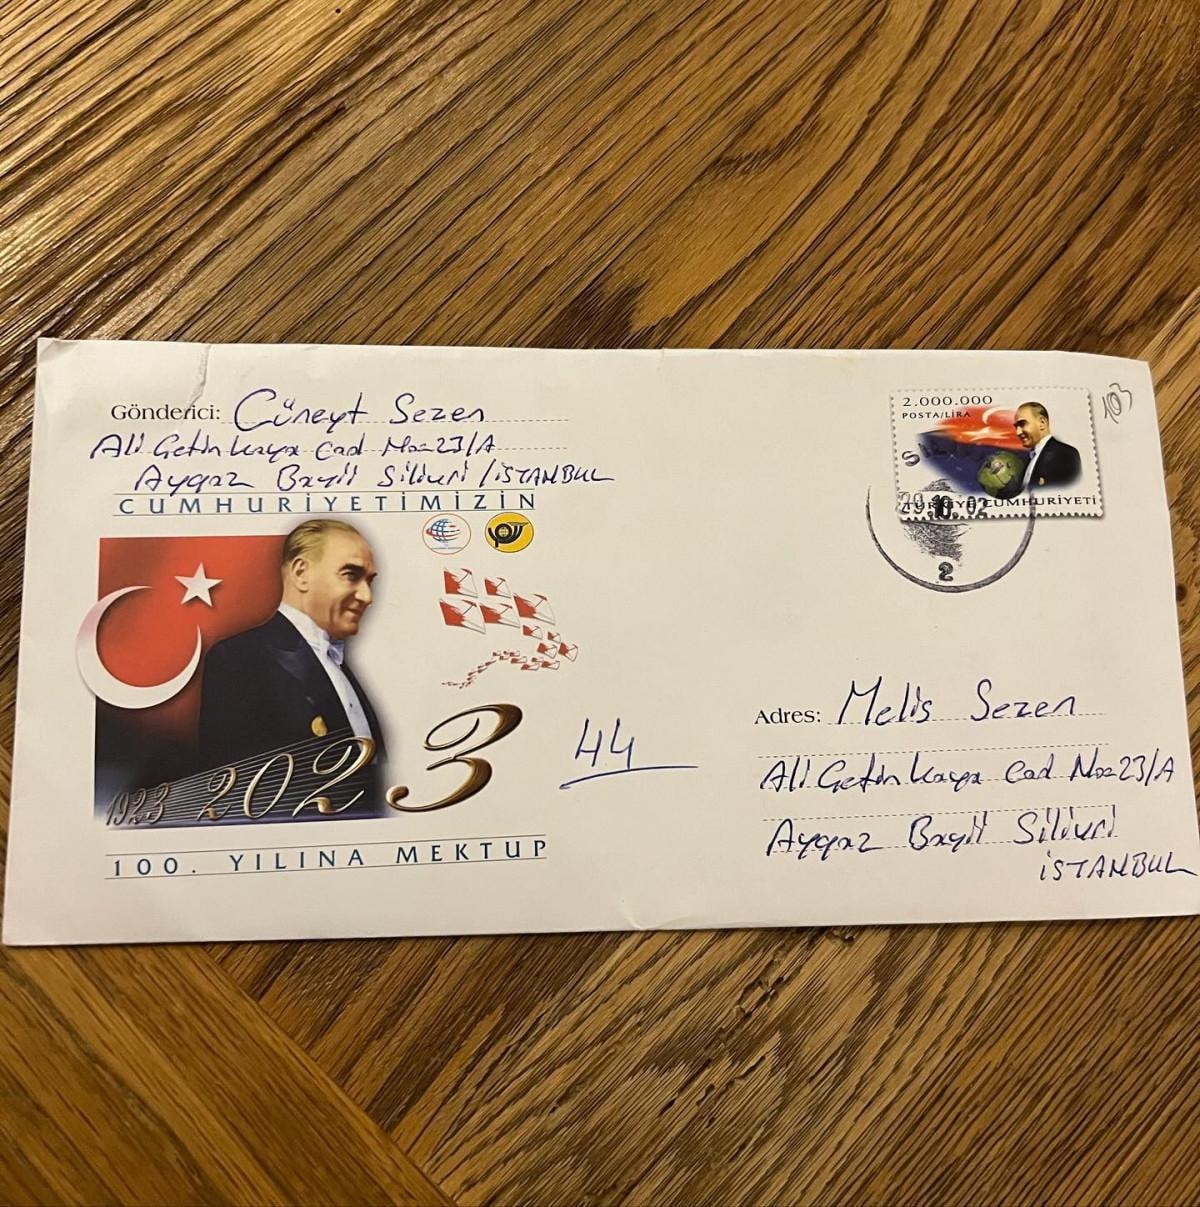 Gönderici: Cüneyt Sezen
Ali Çetin Kaya Cad No=23/A
Aygaz Bayii Silivri / İSTANBUL
CUMHURİYETİMİZİN
1923 2023
100. YILINA MEKTUP
2.000.000
POSTA/LİRA
TÜRKİYE CUMHURİYETİ
29.10.02
2
103
44
Adres: Melis Sezen
Ali Çetin Kaya Cad No=23/A
Aygaz Bayii Silivri
İSTANBUL